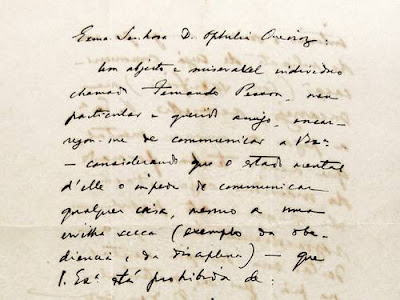 Exma Senhora D. Ophelia Queiroz:
Um abjecto e miseravel individuo
chamado Fernando Pessoa, meu
particular e querido amigo, encar-
regou-me de communicar a V. Ex.ª
— considerando que o estado mental
d'elle o impede de communicar
qualquer coisa, mesmo a uma
ervilha secca (exemplo da obe-
diencia e da disciplina) — que
V. Ex.ª está prohibida de: